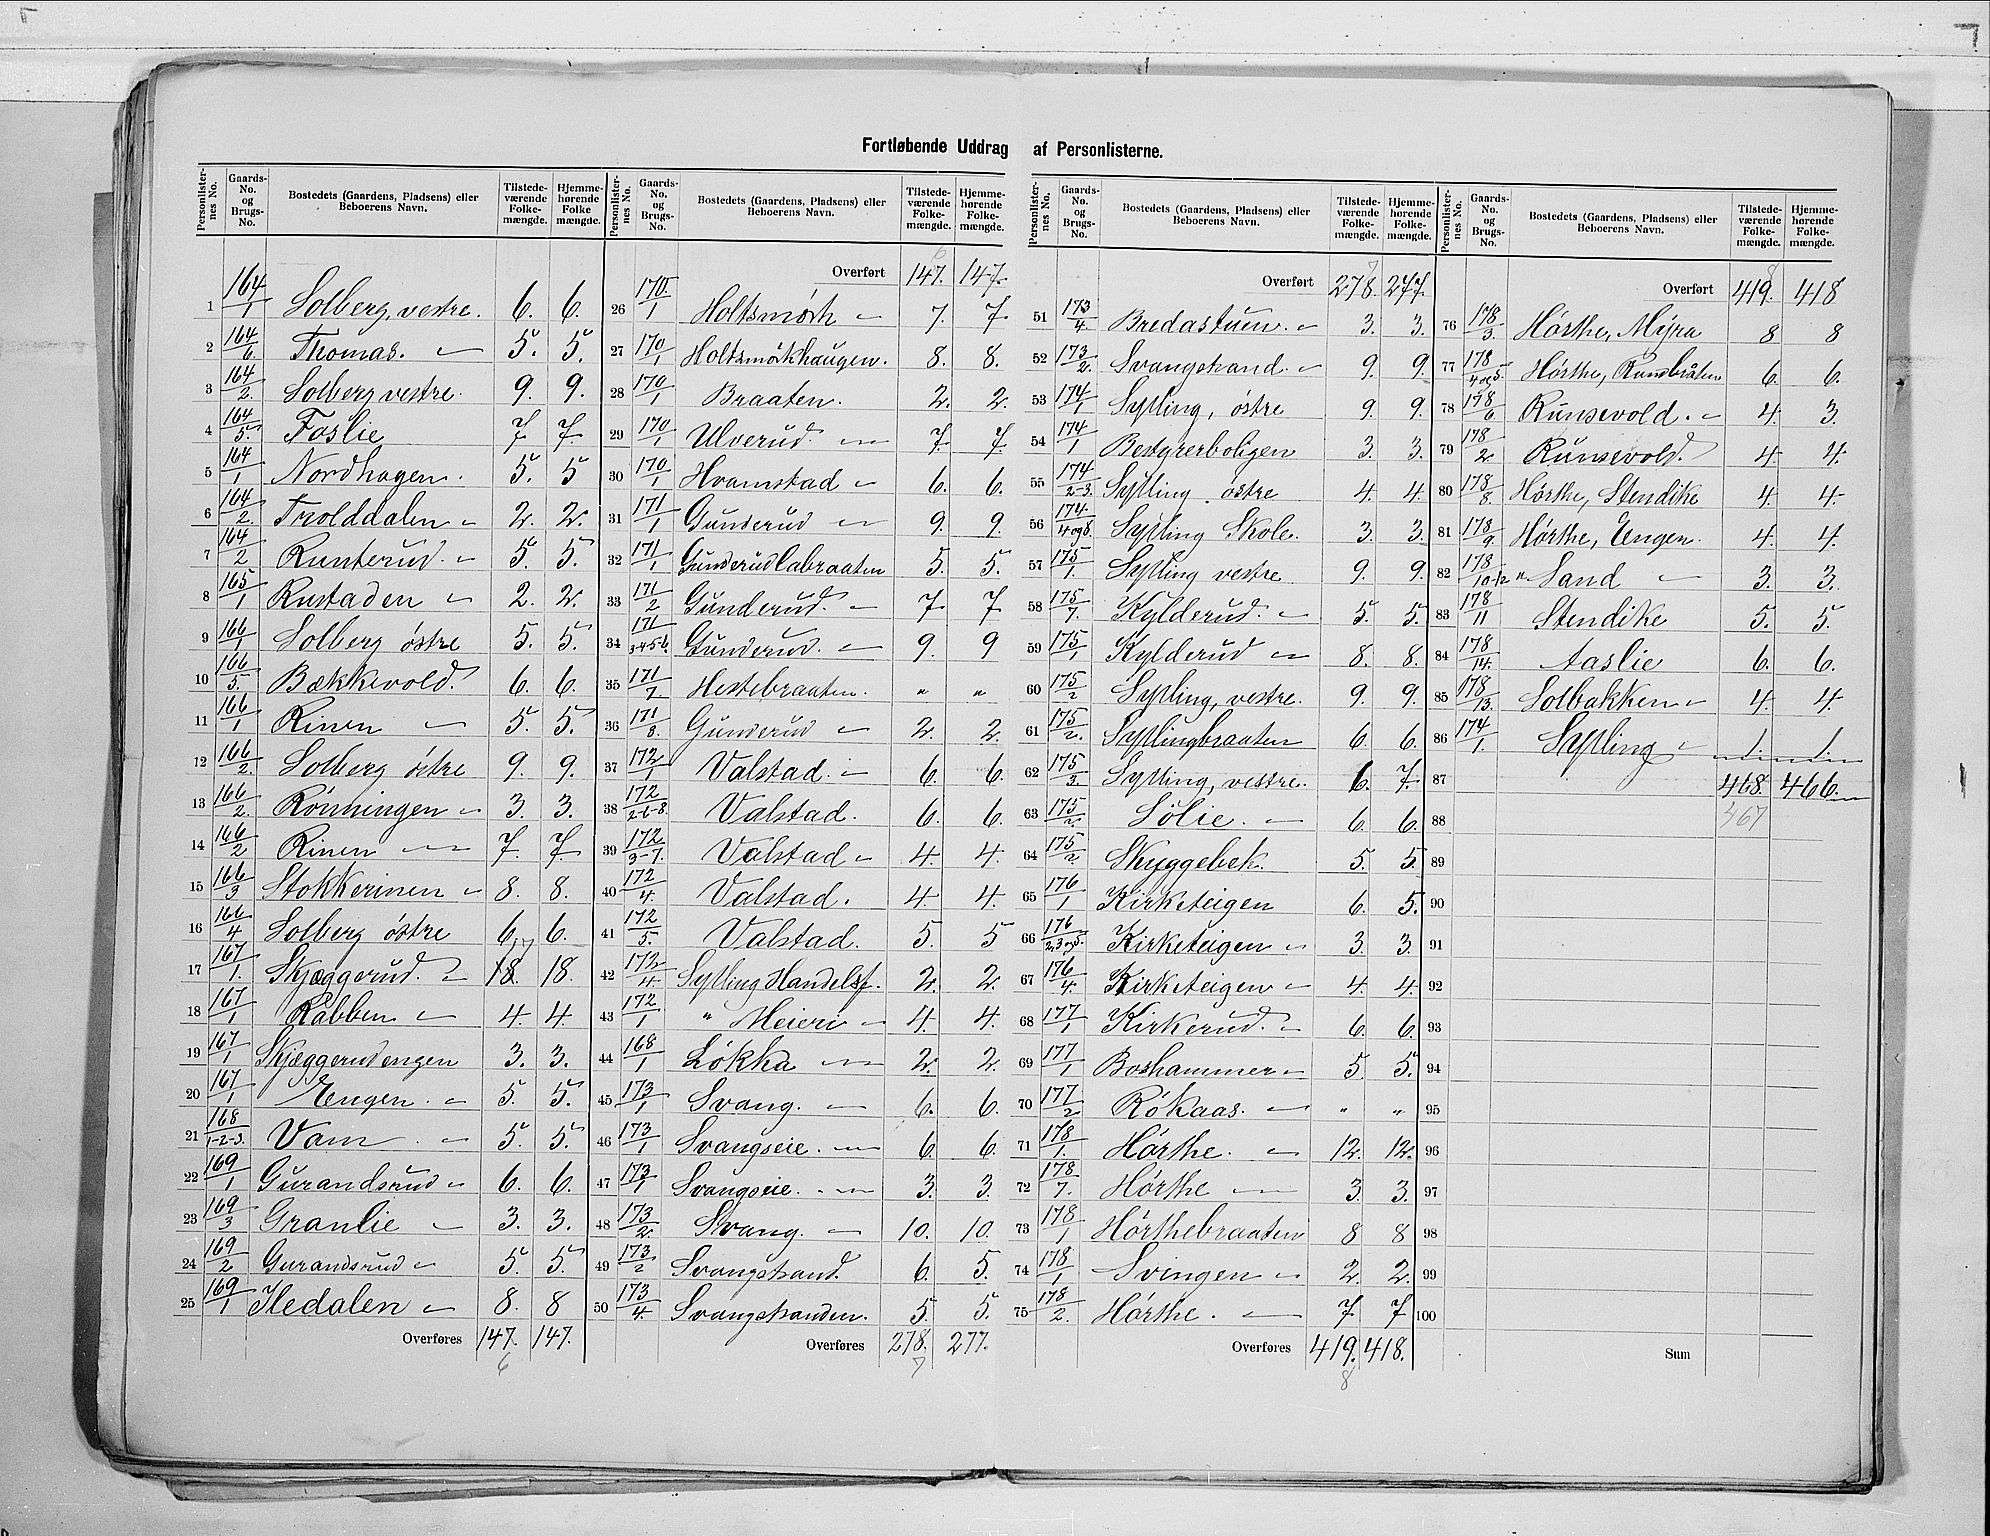 Fortløbende Uddrag af Personlisterne.
Personlister-nes No. | Gaards-No. og Brugs-No. | Bostedets (Gaardens, Pladsens) eller Beboerens Navn. | Tilstede-værende Folke-mængde. | Hjemme-hørende Folke mængde.
1 164/1 Solberg vestre. 6. 6.
2 164/6. Thomas. 5. 5.
3 164/2. Solberg vestre. 9. 9.
4 164/5. Foslie 7 7
5 164/1 Nordhagen. 5. 5
6 164/2. Trolddalen 2. 2.
7 164/2 Runterud. 5. 5.
8 165/1 Rustaden 2. 2.
9 166/1 Solberg östre 5. 5.
10 166/5. Bækkevold. 6. 6.
11 166/1 Rinen 5. 5.
12 166/2. Solberg östre 9. 9.
13 166/2 Rönningen 3. 3.
14 166/2 Rinen 7. 7.
15 166/3 Stokkerinen 8. 8.
16 166/4 Solberg östre 6. 6.
17 167/1. Skjæggerud. 18. 17 18.
18 167/1 Rabben 4. 4.
19 167/1 Skjæggerudengen 3. 3.
20 167/1 Engen. 5. 5.
21 168/1-2-3. Vam 5. 5.
22 169/1 Gurandsrud 6. 6.
23 169/3 Granlie 3. 3.
24 169/2 Gurandsrud 5. 5.
25 169/1 Iledalen 8. 8
Overføres 147. 147.
6
Personlister-nes No. | Gaards-No. og Brugs-No. | Bostedets (Gaardens, Pladsens) eller Beboerens Navn. | Tilstede-værende Folke-mængde. | Hjemme-hørende Folke-mængde.
6
Overført 147. 147.
26 170/1 Holtsmørk 7. 7
27 170/1 Holtsmøkhaugen. 8. 8.
28 170/1 Braaten. 2. 2.
29 170/1 Ulverud. 7. 7.
30 170/1 Hvamstad 6. 6.
31 171/1 Gunderud 9. 9.
32 171/1 Gunderudlabraaten 5. 5.
33 171/2 Gunderud. 7. 7.
34 171/3-4-5-6. Gunderud. 9. 9
35 171/7. Hestebraaten. " "
36 171/8. Gunderud 2. 2.
37 172/1 Valstad. 6. 6.
38 172/2-6-8 Valstad. 6. 6.
39 172/3-7. Valstad 4. 4.
40 172/4. Valstad. 4. 4.
41 172/5. Valstad. 5. 5
42 172/4. Sylling Handelsf. 2. 2.
43 172/1 " Meieri 4. 4.
44 168/1 Løkka 2. 2.
45 173/1 Svang. 6. 6.
46 173/1 Svangseie. 6. 6.
47 173/1 Svangseie. 3. 3.
48 173/2. Svang. 10. 10.
49 173/2 Svangstrand. 6. 5.
50 173/4. Svangstranden. 5. 5.
Overføres 278. 277.
7
Personlister-nes No. | Gaards-No. og Brugs-No. | Bostedets (Gaardens, Pladsens) eller Beboerens Navn. | Tilstede-værende Folke-mængde. | Hjemme-hørende Folke-mængde.
7
Overført 278. 277.
51 173/4. Bredastuen. 3. 3.
52 173/2. Svangstrand. 9. 9.
53 174/1 Sylling, østre 9. 9.
54 174/1 Bestyrerboligen 3. 3.
55 174/2-3. Sylling østre 4. 4.
56 174./4og8. Sylling Skole. 3. 3.
57 175/1. Sylling vestre 9. 9.
58 175/7. Kylderud. 5. 5.
59 175/1 Kylderud 8. 8.
60 175/2 Sylling, vestre. 9. 9.
61 175/2. Syllingbraaten 6. 6.
62 175/3 Sylling, vestre. 6. 7.
63 175/2. Sölie. 6. 6.
64 175/2 Skyggebek. 5. 5.
65 176/1 Kirketeigen 6. 5.
66 176/2,3og5. Kirketeigen 3. 3.
67 176/4. Kirketeigen 4. 4.
68 177/1 Kirkerud. 6. 6.
69 177/1 Boshammer 5. 5.
70 177/2 Rökaas. " "
71 178/1. Hörthe. 12. 12.
72 178/7. Hörthe 3. 3.
73 178/1 Hörthebraaten 8 8
74 178/1 Svingen 2. 2.
75 178/2. Hörthe. 7 7
Overføres 419. 418.
8
Personlister-nes No. | Gaards-No. og Brugs-No. | Bostedets (Gaardens, Pladsens) eller Beboerens Navn. | Tilstede-værende Folke-mængde. | Hjemme-hørende Folke-mængde.
8
Overført 419. 418
76 178/3. Hörthe, Myra 8 8
77 178/4og5. Hörthe, Runsbråten 6. 6.
78 178/6 Runsevold. 4. 3.
79 178/2 Runsevold. 4. 4.
80 178/8 Hörthe, Stendike 4. 4.
81 178/9. Hörthe, Engen. 4. 4.
82 178/10-12 " Sand 3. 3.
83 178/11 Stendike 5. 5.
84 178/14. Aaslie 6. 6.
85 178/13. Solbakken 4. 4.
86 174/1. Sylling 1. 1.
87 468. 466.
88 467
89
90
91
92
93
94
95
96
97
98
99
100
Sum